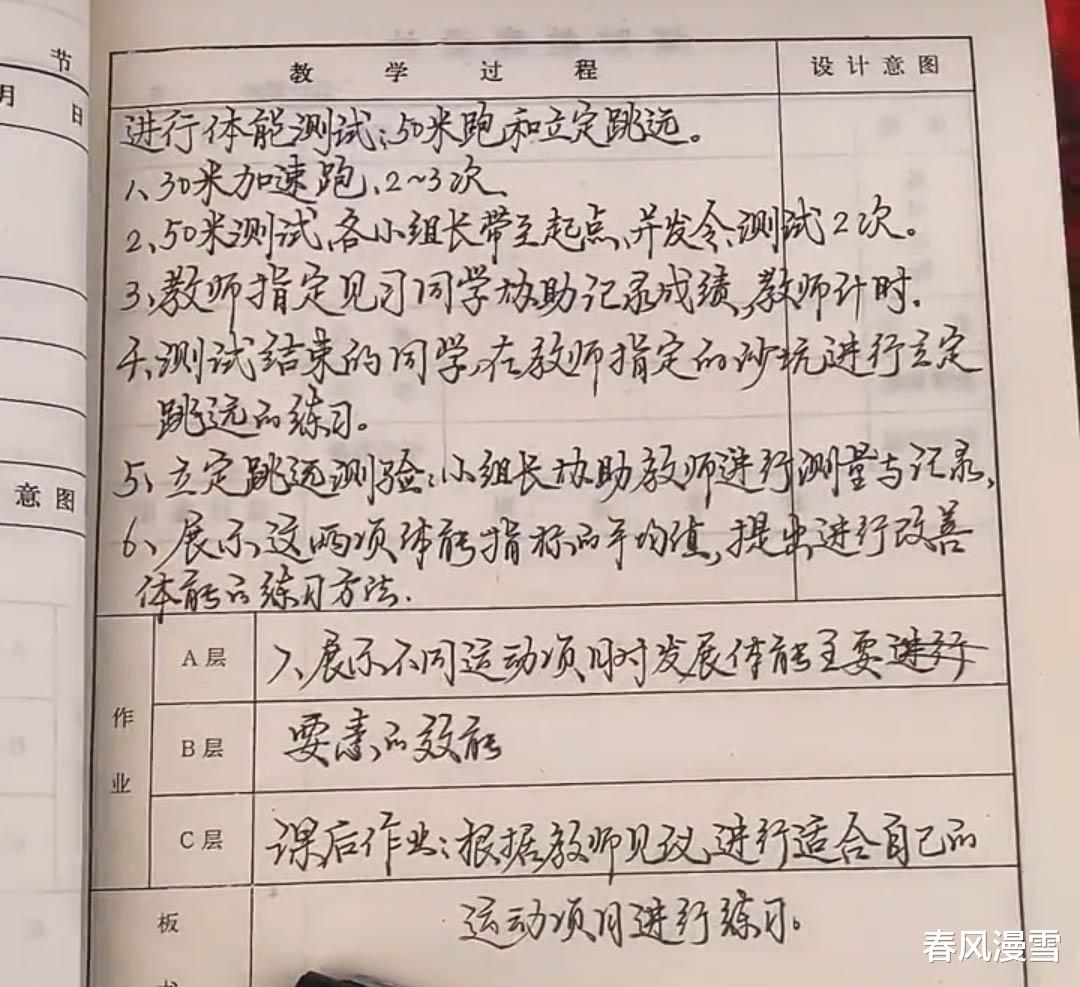 节
月 日
意图
教 学 过 程 设计意图
进行体能测试:50米跑和立定跳远。
1、30米加速跑、2~3次
2、50米测试、各小组长带至起点、并发令、测试2次。
3、教师指定见习同学协助记录成绩,教师计时.
4、测试结束的同学,在教师指定的沙坑进行立定
跳远的练习。
5、立定跳远测验:小组长协助教师进行测量与记录、
6、展示这两项体能指标的平均值,提出进行改善
体能的练习方法.
作业
A层 7、展示不同运动项目对发展体能主要进行
B层 要素的效能
C层 课后作业:根据教师见议、进行适合自己的
板
运动项目进行练习。
春风漫雪